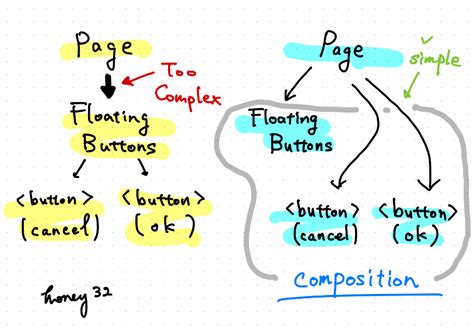 Page
Too
Complex
Floating
Buttons
<button>
(cancel)
<button>
(ok)
honey 32
Page
simple
Floating
Buttons
<button>
(cancel)
<button>
(ok)
Composition